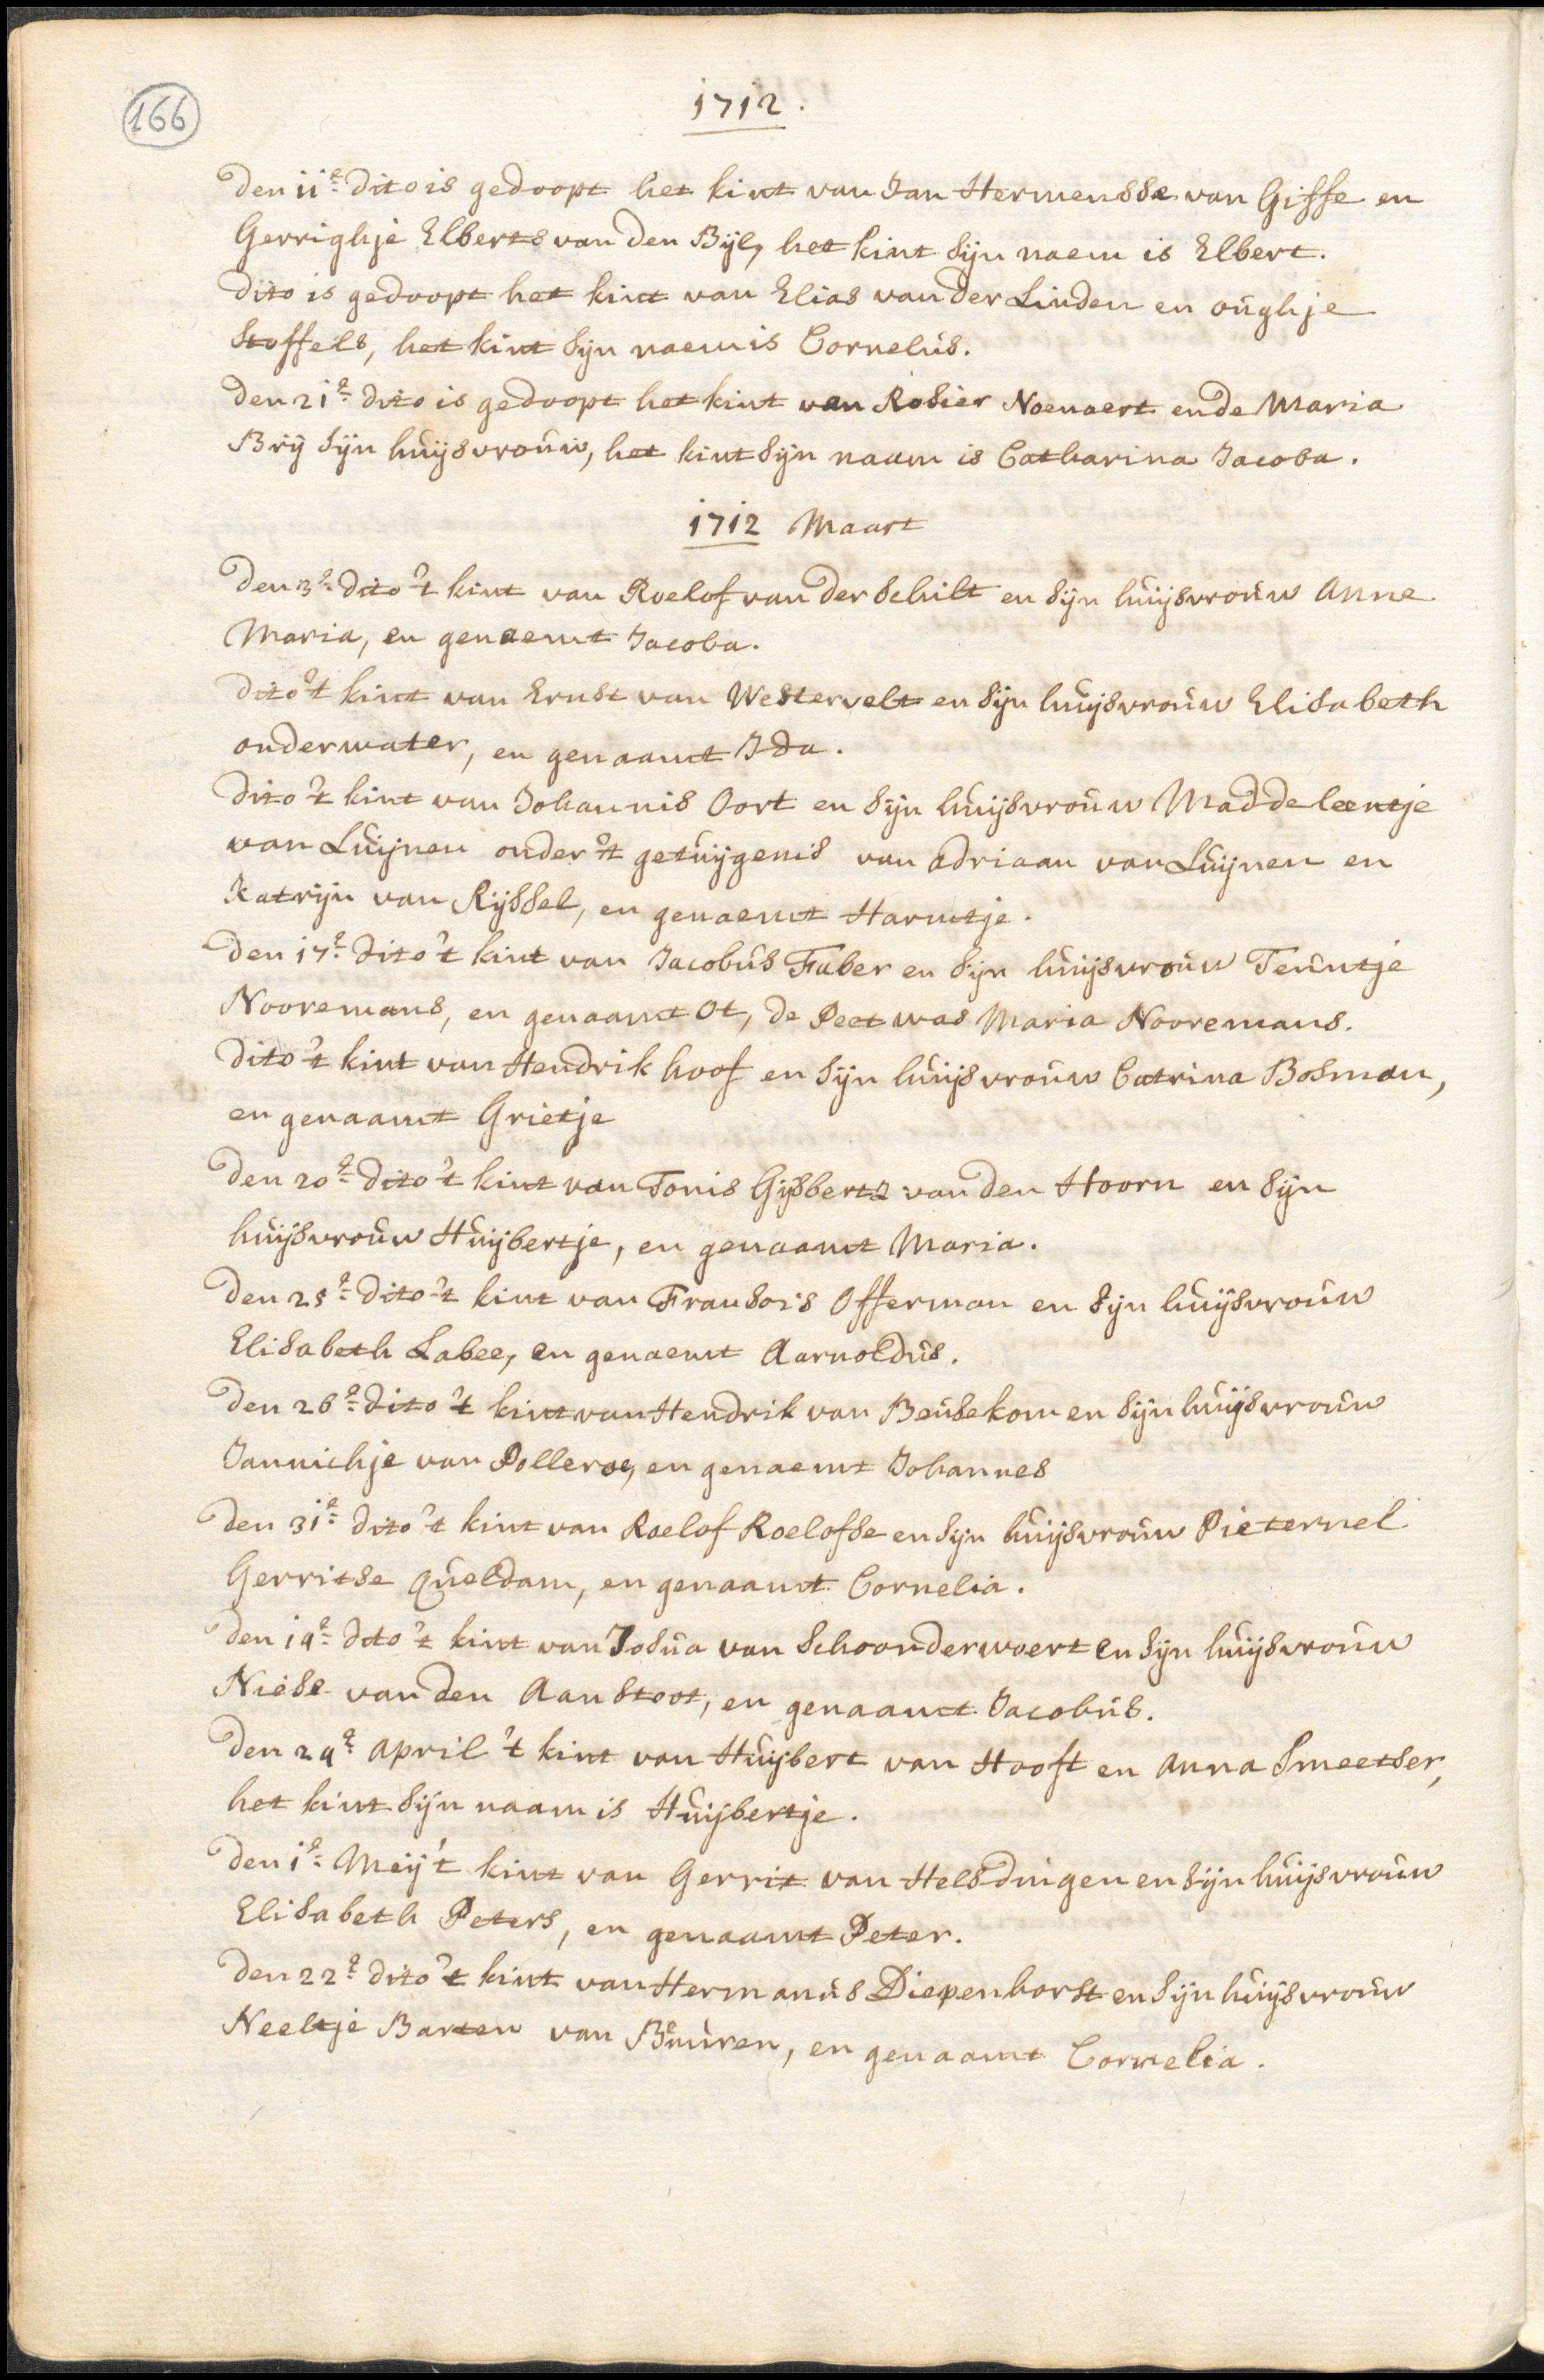 166
1712.
Den 11e dito is gedoopt het kint van Jan Hermensse van Giffe en
Gerrighje Elberts van den Bijl, het kint sijn naem is Elbert.
Dito is gedoopt het kint van Elias van der Linden en oúghje
Stoffels, het kint sijn naem is Cornelús.
Den 21e dito is gedoopt het kint van Rosier Noenaert ende Maria
Brij sijn húijsvroúw, het kint sijn naam is Catharina Jacoba.
1712 Maart
Den 3e dito 't kint van Roelof van der Schilt en sijn húijsvroúw Anne
Maria, en genaemt Jacoba.
Dito 't kint van Ernst van Westervelt en sijn húijsvroúw Elisabeth
onderwater, en genaamt Ida.
Dito 't kint van Johannis Oort en sijn húijsvroúw Maddeleentje
van Lúijnen onder 't getúijgenis van Adriaan van Lúijnen en
Katrijn van Rijssel, en genaemt Harmtje.
Den 17e dito 't kint van Jacobús Faber en sijn húijsvroúw Teúntje
Nooremans, en genaamt Ot, de Peet was Maria Nooremans.
Dito 't kint van Hendrik hoof en sijn húijsvroúw Catrina Bosman,
en genaamt Grietje
Den 20e dito 't kint van Tonis Gijsbertz van den Hoorn en sijn
húijsvroúw Húijbertje, en genaamt Maria.
Den 25e dito 't kint van Fransois Offerman en sijn húijsvroúw
Elisabeth Labee, en genaemt Aarnoldús.
Den 26e dito 't kint van Hendrik van Beúsekom en sijn húijsvroúw
Jannichje van Polleroe, en genaemt Johannes
Den 31e dito 't kint van Roelof Roelofse en sijn húijsvroúw Pieternel
Gerritse Qúeldam, en genaamt Cornelia.
Den 19e dito 't kint van Josúa van Schoonderwoert en sijn húijsvroúw
Niese van den Aanstoot, en genaamt Jacobús.
Den 24e April 't kint van Húijbert van Hooft en Anna Smeetser,
het kint sijn naam is Húijbertje.
Den 1e Meij 't kint van Gerrit van Helsdingen en sijn húijsvroúw
Elisabeth Peters, en genaamt Peter.
Den 22e dito 't kint van Hermanús Diepenhorst en sijn húijsvroúw
Neeltje Barten van Búúren, en genaamt Cornelia.